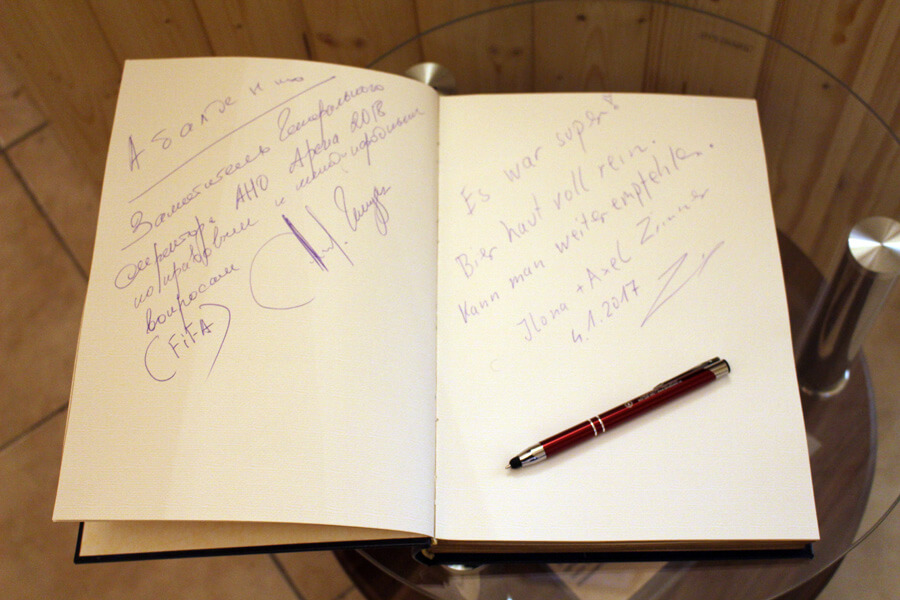 Абалденно
Заместитель Генерального
директора АНО Арена 2018
по правовым и
вопросам
(FiFA)
Es war super!
Bier haut voll rein.
Kann man weiterempfehlen.
Ilona + Axel Zimmer
4.1.2017